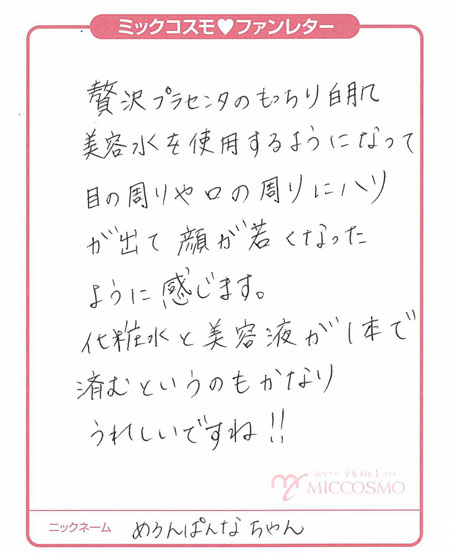 ミックコスモ♥ファンレター
贅沢プラセンタのもっちり白肌
美容水を使用するようになって
目の周りや口の周りにハリ
が出て顔が若くなった
ように感じます。
化粧水と美容液が1本で
済むというのもかなり
うれしいですね!!
MICCOSMO
ニックネーム めろんぱんなちゃん